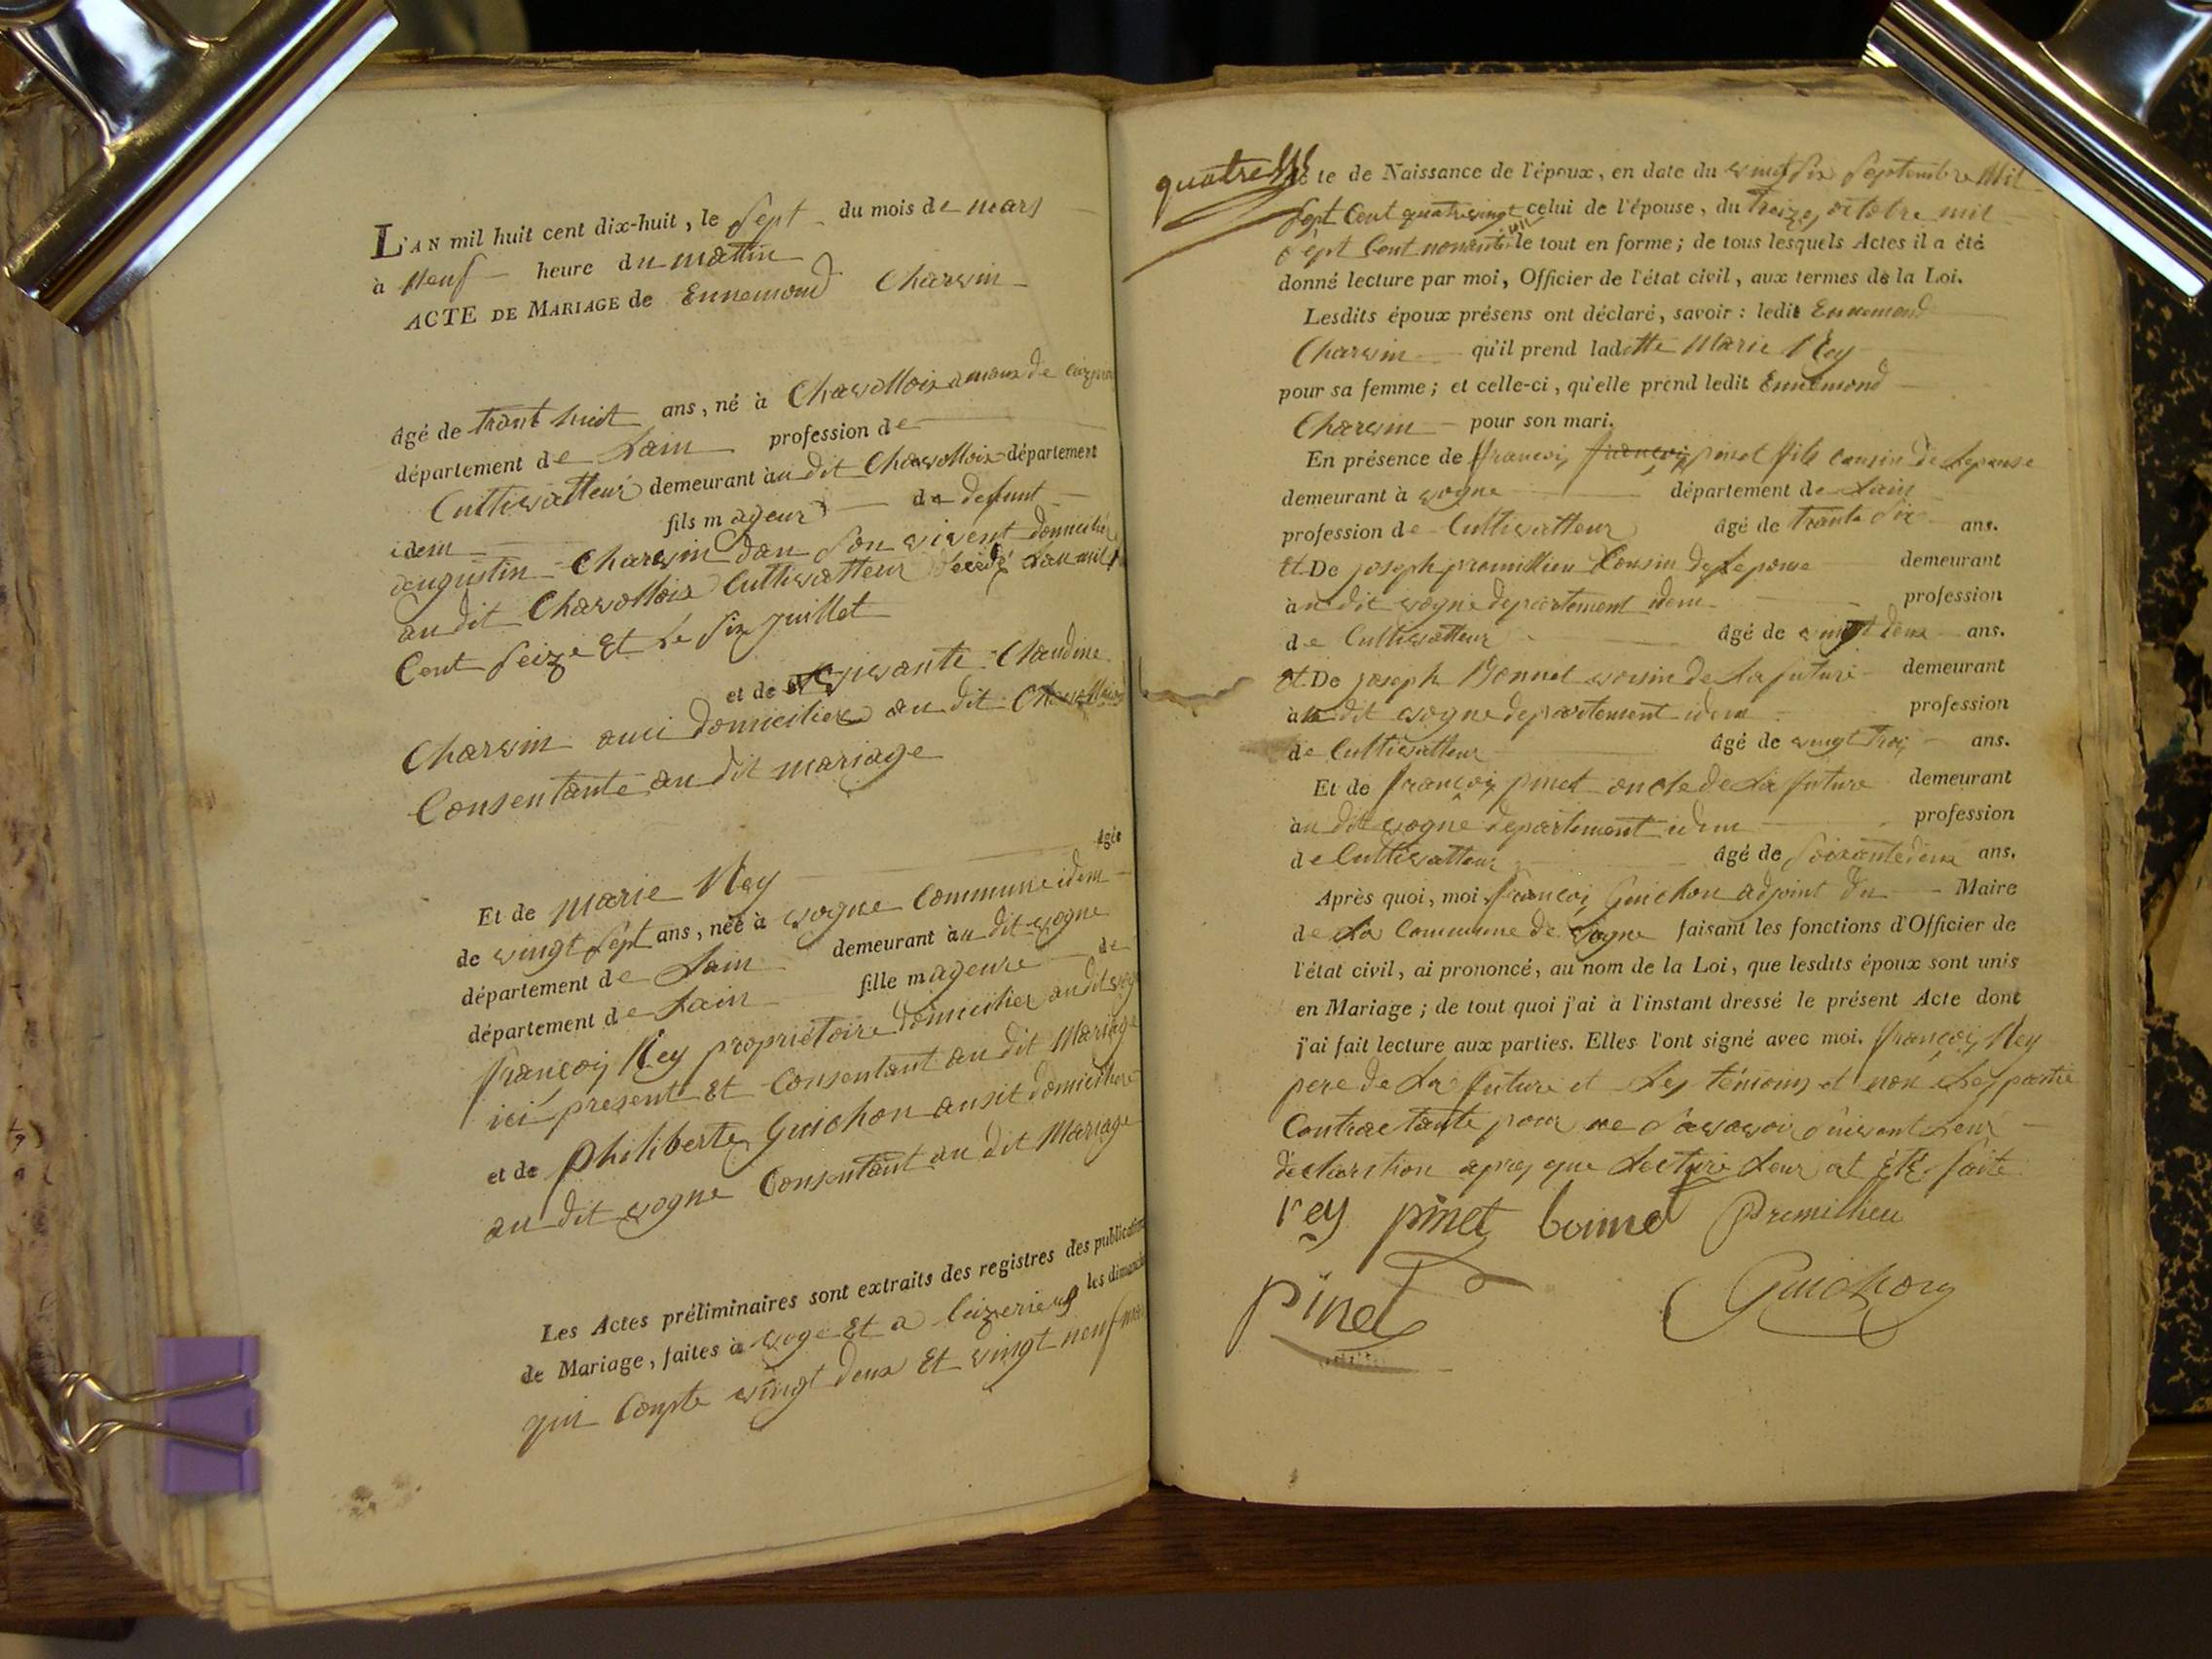 L'AN mil huit cent dix-huit, le Sept du mois de mars
à neuf heure du mattin
ACTE DE MARIAGE de Ennemond Charvin
âgé de trant huit ans, né à Chavollois
département de Lain profession de
Cultivatteur demeurant à au dit Chavollois département
idem fils mageur de deffunt
augustin Charvin dan Son vivent domicilié
au dit Chavollois Cultivatteur décédé Lan mil
Cent Seize Et Le Six juillet
et de vivante Claudine
Charvin auci domicilieé au dit Chavollois
Consentante au dit mariage
Et de marie Rey âgée
de vingt Sept ans, née à vogne Commune idem
département de Lain demeurant à au dit vogne
département de Lain fille mageure de
françois Rey propriétoire domicilier au dit vogne
ici present Et Consentant au dit Mariage
et de Philiberte Guichon ausit domicilieé
au dit vogne Consentant au dit Mariage
Les Actes préliminaires sont extraits des registres des publications
de Mariage, faites à voge Et a les dimanches
qui Conpte vingt deux Et vingt neuf
quatre
Acte de Naissance de l'époux, en date du vingt Six Septembre Mil
Sept Cent quatrevingt celui de l'épouse, du Treize octobre mil
Sept Cent nonante le tout en forme; de tous lesquels Actes il a été
donné lecture par moi, Officier de l'état civil, aux termes de la Loi.
Lesdits époux présens ont déclaré, savoir : ledit Ennemond
Charvin qu'il prend laditte Marie Rey
pour sa femme; et celle-ci, qu'elle prend ledit Ennemond
Charvin pour son mari.
En présence de françois françois pinet fils cousin de Lepouse
demeurant à vogne département de Lain
profession de Cultivatteur âgé de trante Six ans.
Et De joseph promillieu Cousin de Lepouse demeurant
à au dit vogne departement idem profession
de Cultivatteur âgé de vingt deux ans.
Et De joseph Bonnet voisin de La future demeurant
à au dit vogne departement idem profession
de Cultivatteur âgé de vingt Trois ans.
Et de françois pinet oncle de La future demeurant
à au dit vogne departement idem profession
de Cultivatteur âgé de Soixante deux ans.
Après quoi, moi, françois Guichon adjoint du Maire
de La Commune de vogne faisant les fonctions d'Officier de
l'état civil, ai prononcé, au nom de la Loi, que lesdits époux sont unis
en Mariage; de tout quoi j'ai à l'instant dressé le présent Acte dont
j'ai fait lecture aux parties. Elles l'ont signé avec moi. françois Rey
pere de La future et Les témoins et non Les partie
Contractante pour ne Savavoir Suivent Leur
déclarstion apres que Lecture Leur at été faite
rey pinet bonned Promillieu
pinet Guichon